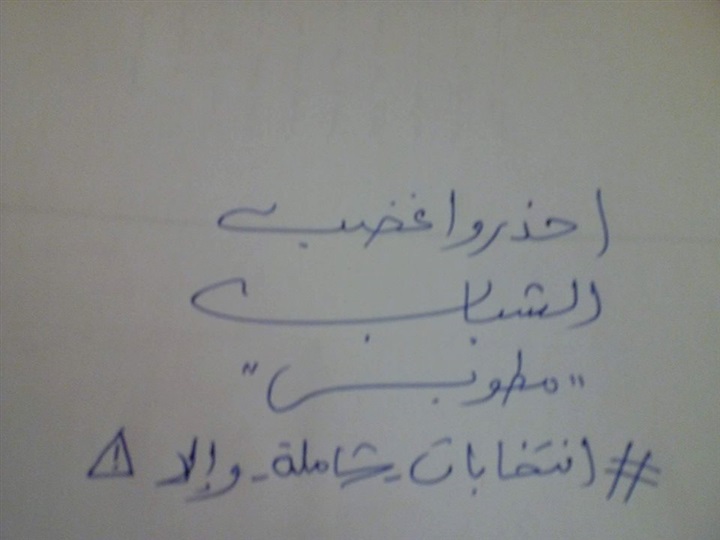 احذروا غضب
الشباب
"مطوبس"
#انتخابات_شاملة_وإلا ⚠